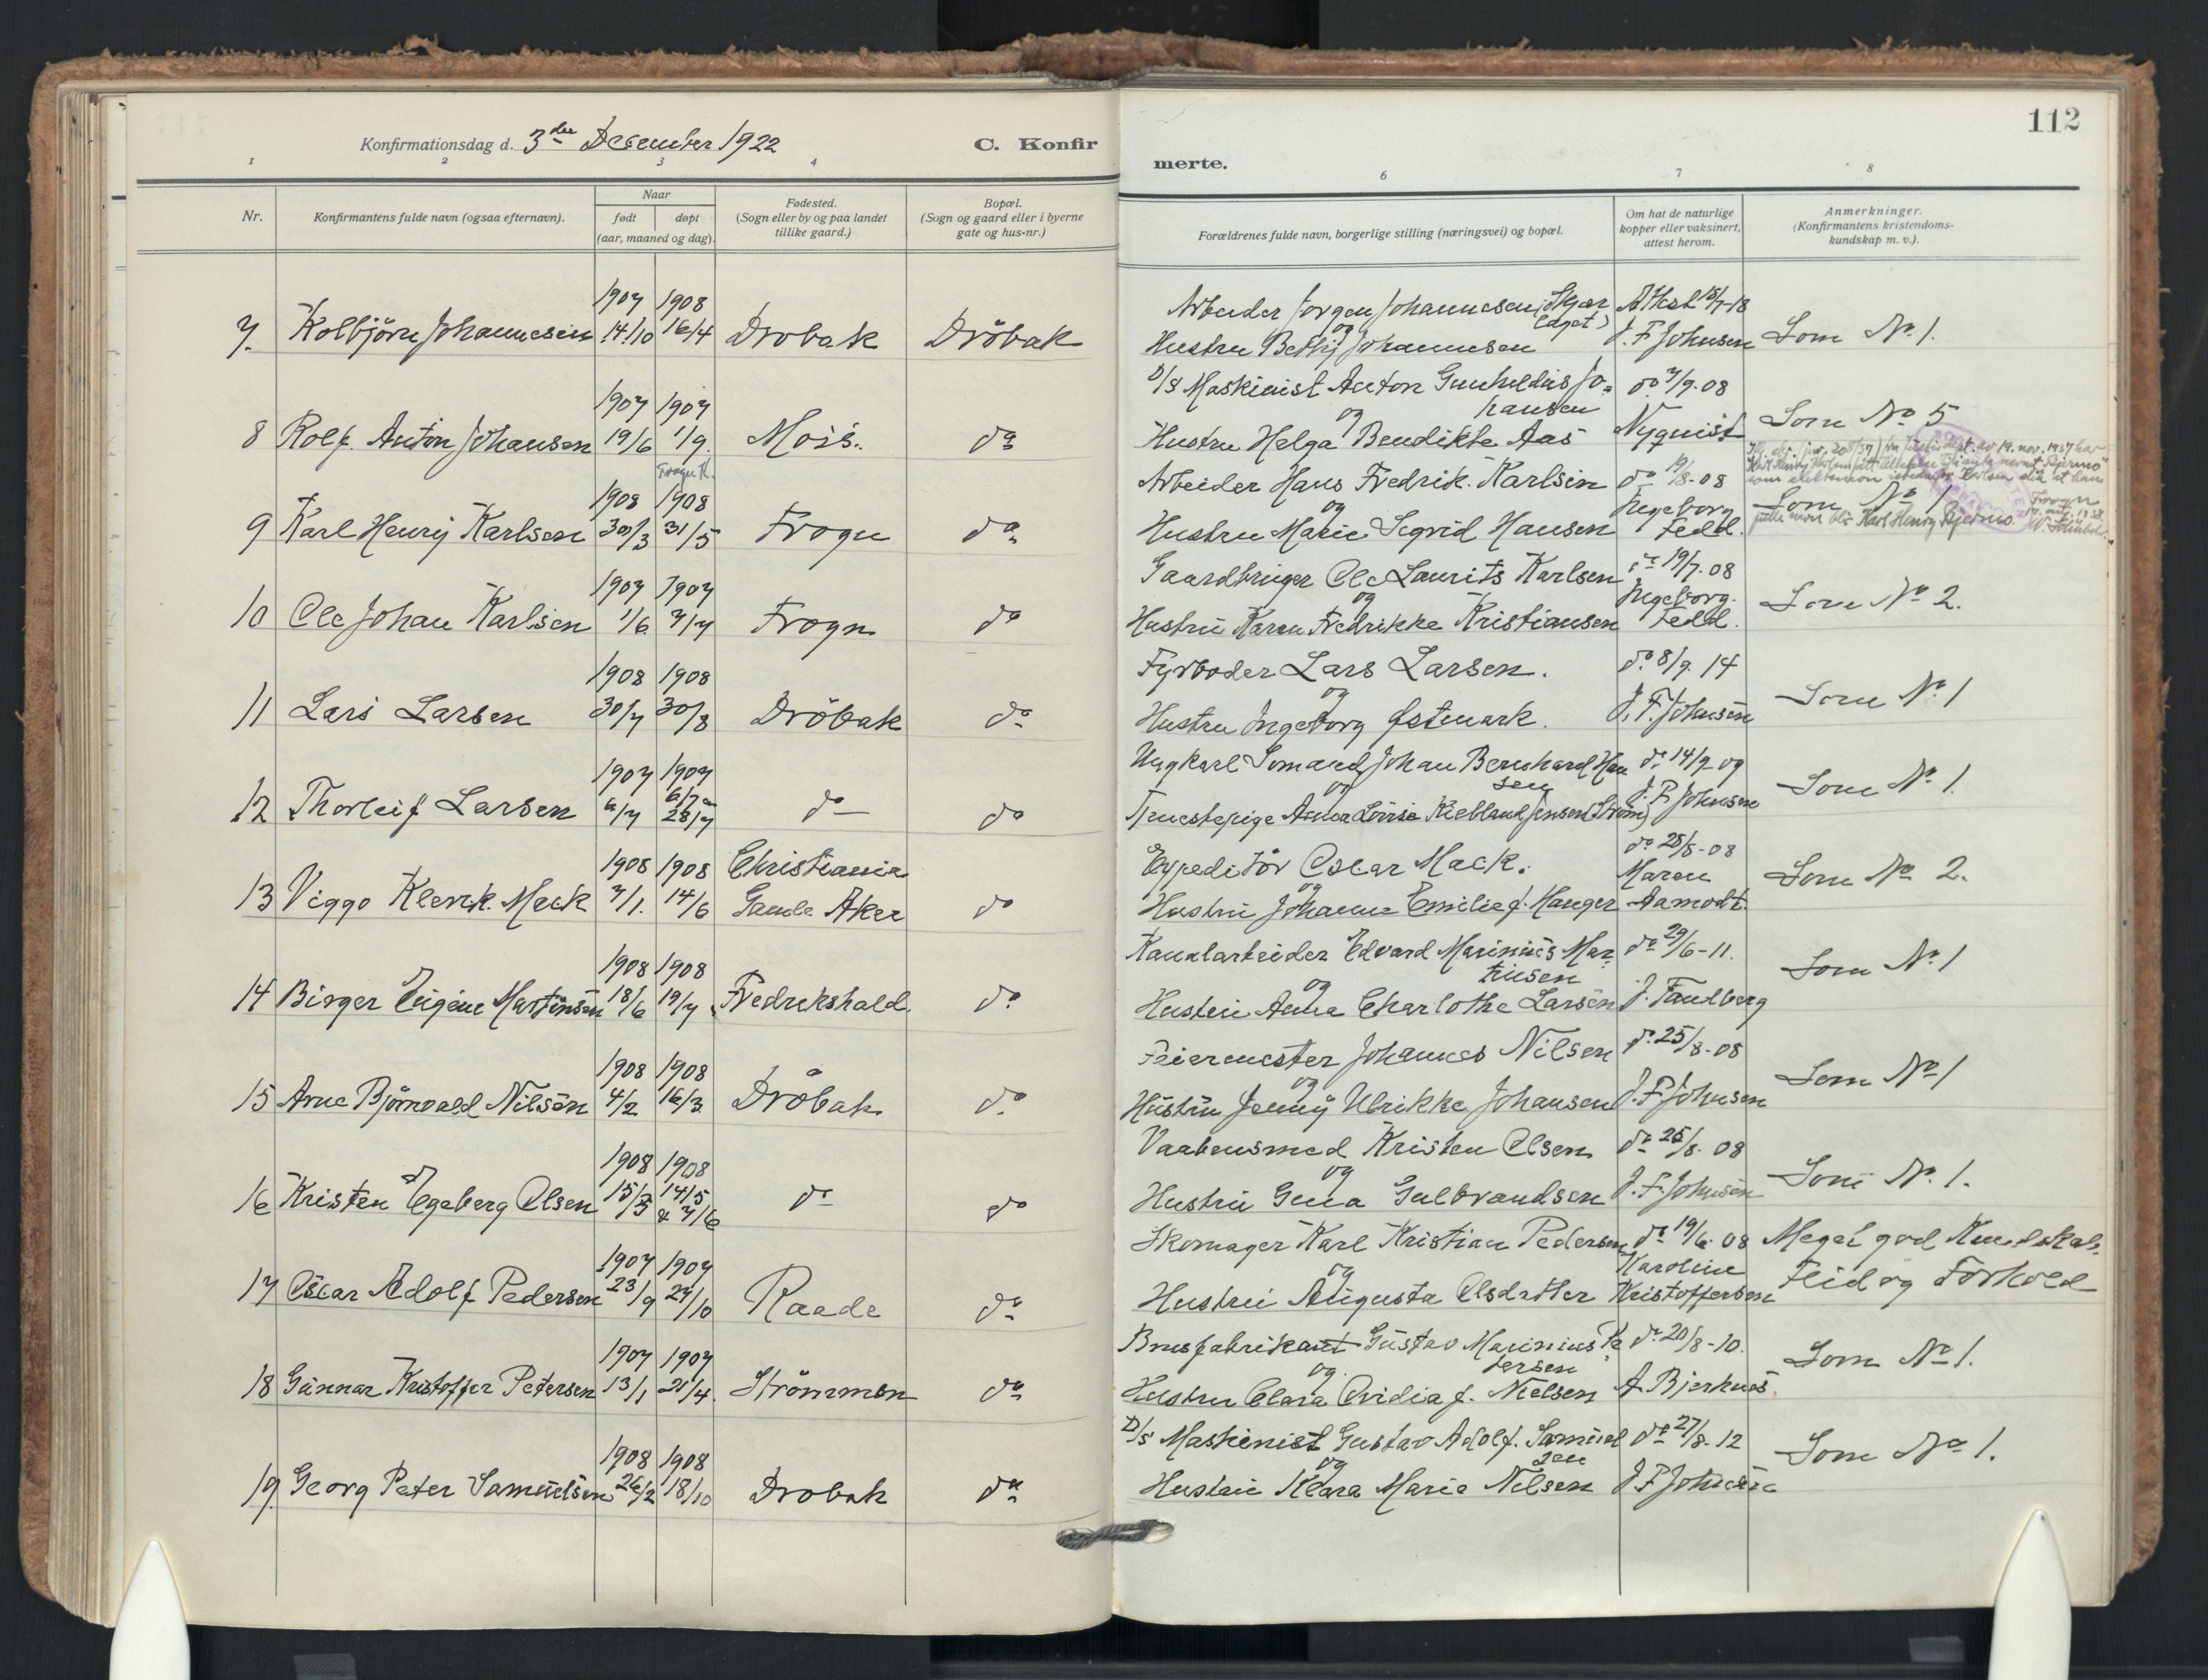 112
Konfirmationsdag d. 3die December 1922
C. Konfir
merte.
1 2 3 4 6 7 8
Nr.
Konfirmantens fulde navn (ogsaa efternavn).
Naar
født døpt
(aar, maaned og dag).
Fødested.
(Sogn eller by og paa landet
tillike gaard.)
Bopæl.
(Sogn og gaard eller i byerne
gate og hus-nr.)
Forældrenes fulde navn, borgerlige stilling (næringsvei) og bopæl.
Om hat de naturlige
kopper eller vaksinert,
attest herom.
Anmerkninger.
(Konfirmantens kristendoms-
kundskap m. v.).
1907 1908
7. Kolbjörn Johannesen 14/10 16/4 Drobak Dröbak
Arbeider Jørgen Johannesen
og
Hustru Bethy Johannesen
Attest 18/7-18
J. F. Johnsen
Som No 1.
1907 1907
8 Rolf Anton Johansen 19/6 1/9. Moss. do
D/S Maskinist Anton Gunheldus Jo=
hansen
og
Hustru Helga Bendikte Aas
do 7/9-08
Nyquist
Som No 5
Frogn K.
1908 1908
9 Karl Henry Karlsen 30/3 31/5 Frogn do
Arbeider Hans Fredrik Karlsen
og
Hustru Marie Sigrid Hansen
do 19/8-08
Ingeborg
Fedd.
Som No 1
fulde navn blir Karl Henry Bjermo.
1907 1907
10 Ole Johan Karlsen 1/6 7/7 Frogn do
Gaardbruger Ole Laurits Karlsen
og
Hustru Karen Fredrikke Kristiansen
do 19/7-08
Ingeborg
Fedd.
Som No 2.
1908 1908
11 Lars Larsen 30/7 30/8 Dröbak do
Fyrboder Lars Larsen.
og
Hustru Ingeborg Østmark.
do 8/9 14
J. F. Johnsen
Som No 1
1907 1907
12 Thorleif Larsen 6/7 28/7 do do
Ungkarl Sømand Johan Bernhard Han
sen
og
Tjenestepige Anna Lovise Kielland Jensen (Strøm)
do 14/9-09
J. F. Johnsen
Som No 1.
1908 1908
13 Viggo Klenk. Mack 7/1. 14/6 Christiania
Gamle Aker do
Expeditör Oscar Mack.
og
Hustru Johanne Emilie f. Hanger
do 28/8-08
Maren
Aamodt.
Som No 2.
1908 1908
14 Birger Eugéne Martinsen 18/6 19/7 Fredrikshald. do
Kanalarbeider Edvard Marinius Mar=
tinsen
og
Hustru Anna Charlothe Larsen
do 29/6-11.
J. Tandberg
Som No 1
1908 1908
15 Arne Björnvald Nilsen 4/2 16/3 Dröbak do
Feiermester Johannes Nilsen
og
Hustru Jenny Ulrikke Johansen
do 25/8-08
J. F. Johnsen
Som No 1
1908 1908
16 Kristen Egeberg Olsen 15/3 14/5
& 7/6 do do
Vaabensmed Kristen Olsen
og
Hustru Gina Gulbrandsen
do 25/8. 08
J. F. Johnsen
Som No 1.
1907 1907
17 Oscar Adolf Pedersen 23/9 27/10 Raade do
Skomager Karl Kristian Pedersen
og
Hustru Augusta Olsdatter
do 19/6-08
Karoline
Kristoffersen
Meget god Kundskab,
Flid og Forhold
1907 1907
18 Gunnar Kristoffer Petersen 13/1 21/4. Strömmen do
Brusfabrikant Gustav Marinius Pe
tersen
og
Hustru Clara Ovidia f. Nielsen
do 20/8-10.
A. Bjerknes.
Som No 1.
1908 1908
19. Georg Peter Samuelsen 26/2 18/10 Drobak do
D/S Maskinist Gustav Adolf. Samuel
sen
og
Hustru Klara Marie Nilsen
do 27/8-12
J F Johnsen
Som No 1.